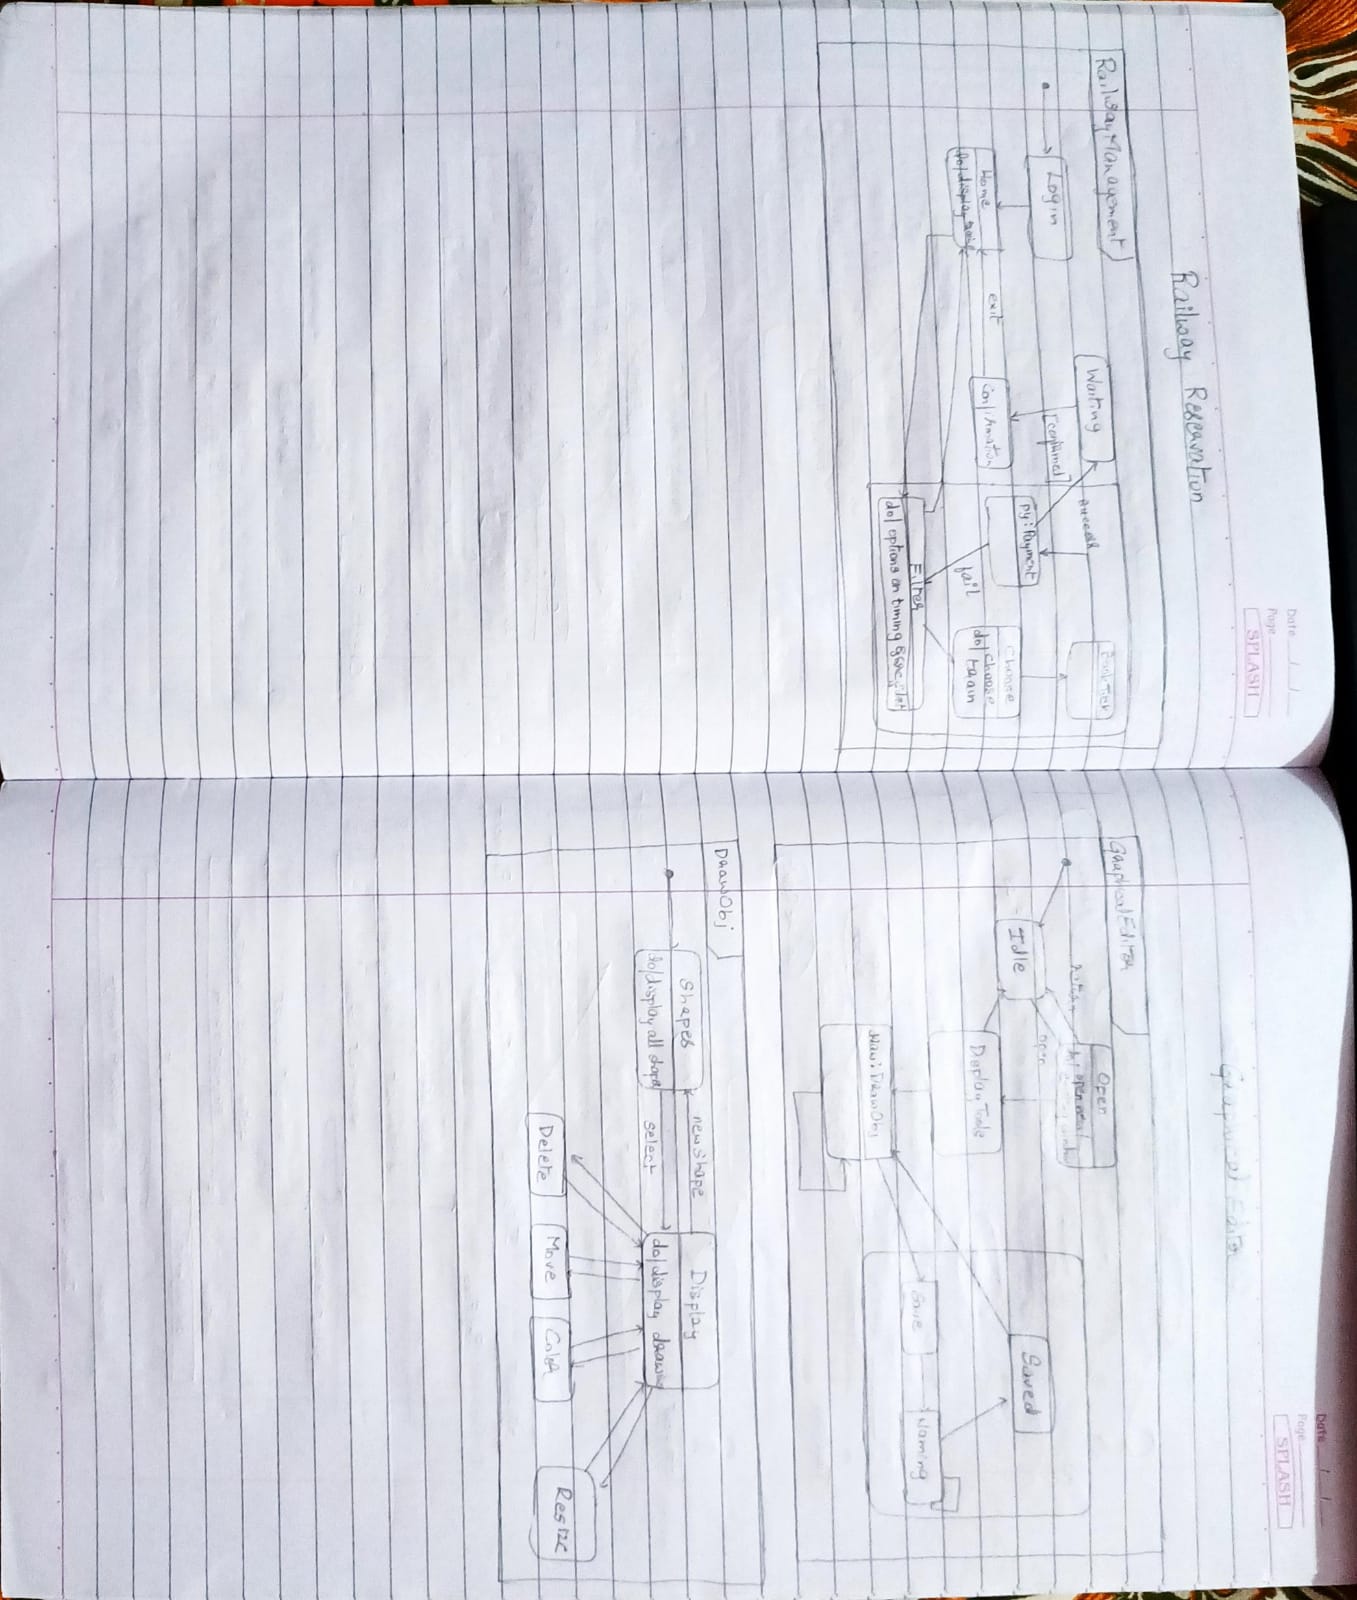 Date
Page
SPLASH
Railway Researvation
RailwayManagement
Login
Home
exit
Waiting
[confirmed]
Confirmation
success
py:Payment
fail
BookTier
Choose
do/choose
train
Filter
do/options on timing
Date
Page
SPLASH
Graphical Editor
GraphicalEditor
Idle
return
open
Open
Display Tools
draw:DrawObj
Save
Naming
Saved
DrawObj
Shapes
do/display all shapes
new shape
select
Display
do/display drawing
Delete
Move
Color
Resize